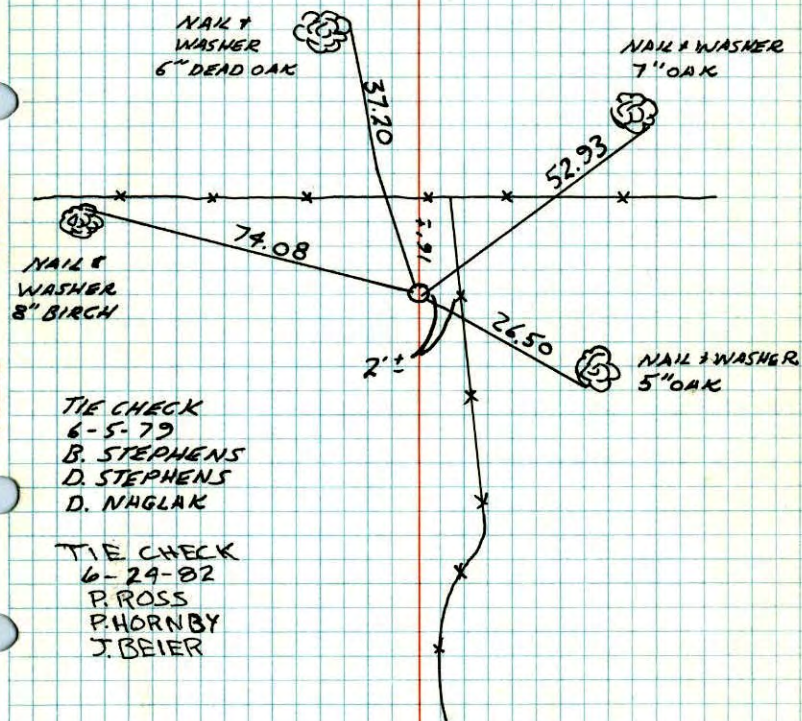 NAIL &
WASHER
6" DEAD OAK
NAIL & WASHER
7" OAK
37.20
52.93
74.08
16'±
NAIL &
WASHER
8" BIRCH
26.50
2'±
NAIL & WASHER
5" OAK
TIE CHECK
6-5-79
B. STEPHENS
D. STEPHENS
D. NAGLAK
TIE CHECK
6-24-82
P. ROSS
P. HORNBY
J. BEIER